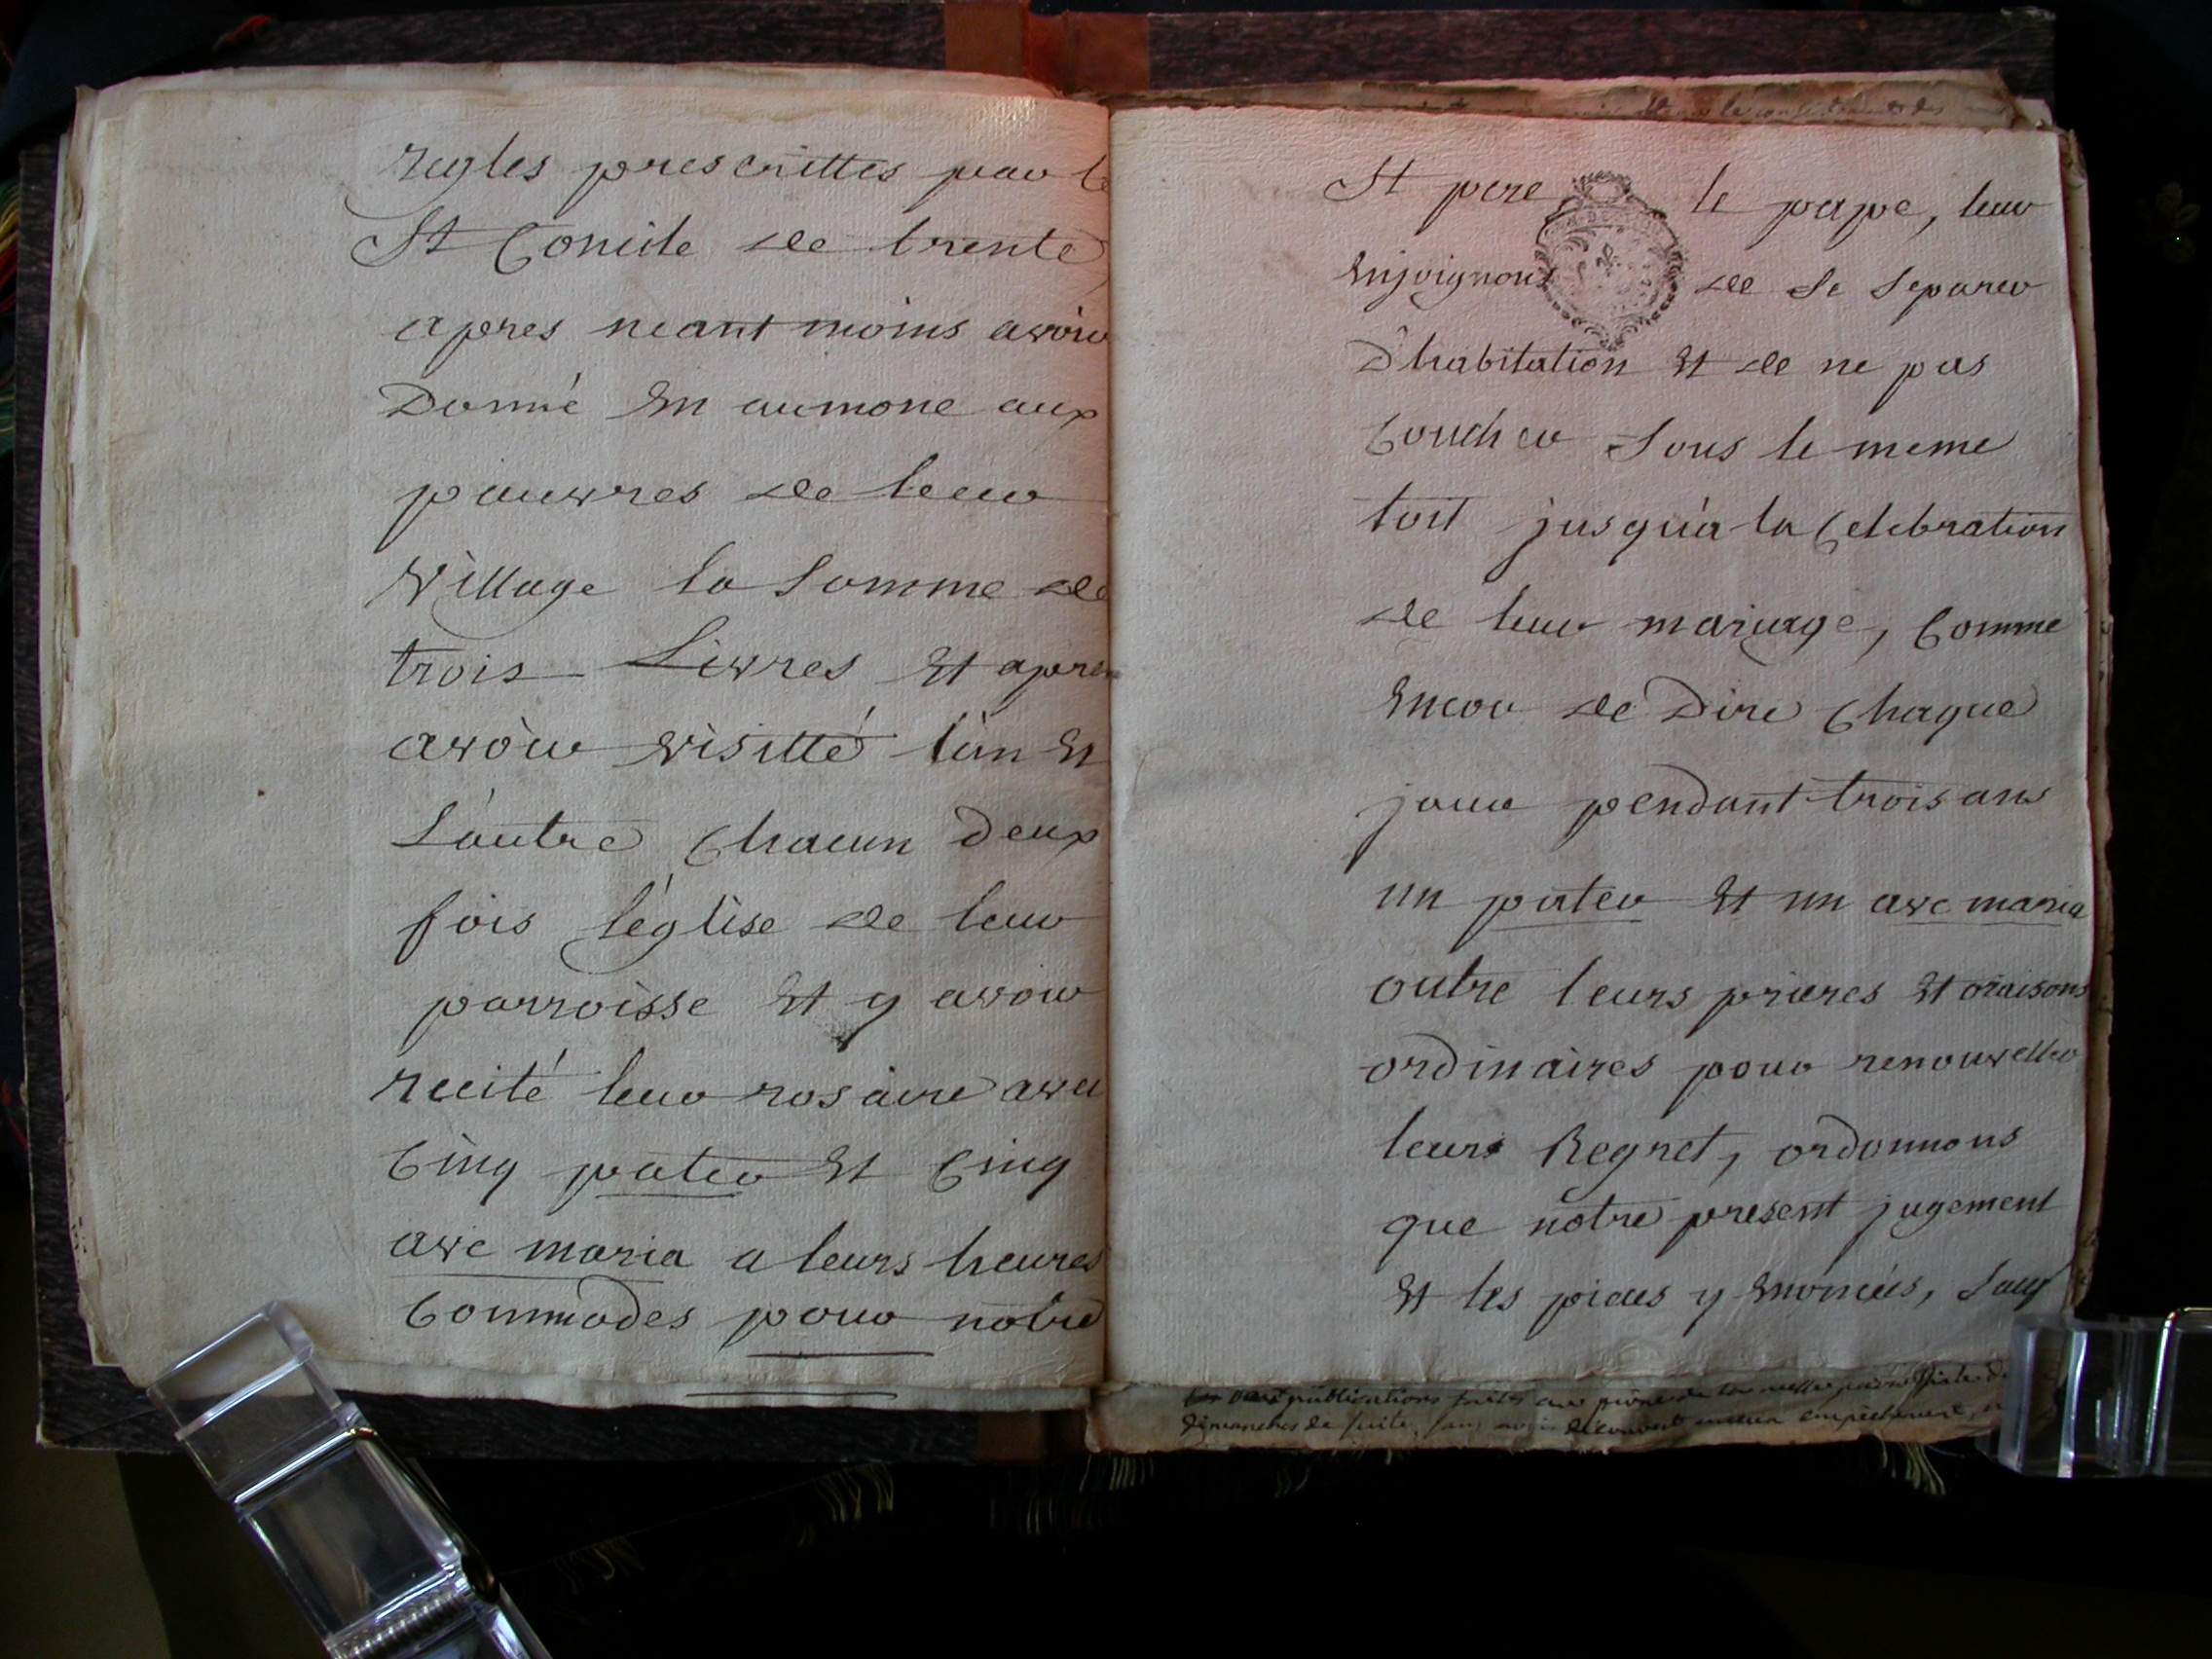 regles prescrittes par le
St Concile de trente
apres neantmoins avoir
Donné En aumone aux
pauvres de leur
Village la Somme de
trois Livres Et apres
avoir visitté l'un Et
L'autre Chacun Deux
fois l'église de leur
parroisse Et y avoir
recité leur rosaire avec
Cinq pater Et Cinq
ave maria a leurs heures
Commodes pour notre
St pere le pape, leur
Enjoignons de Se Separer
D'habitation Et de ne pas
Coucher Sous le meme
toit jusqu'a la Celebration
de leur mariage, Comme
Encor de Dire Chaque
jour pendant trois ans
un pater Et un ave maria
outre leurs prieres Et oraisons
ordinaires pour renouveller
leurs Regret, ordonnons
que notre present jugement
Et les pieces y Enoncées, Sauf
publications faites au prône de la messe
dimanches de suite, sans avoir découvert aucun empêchement,